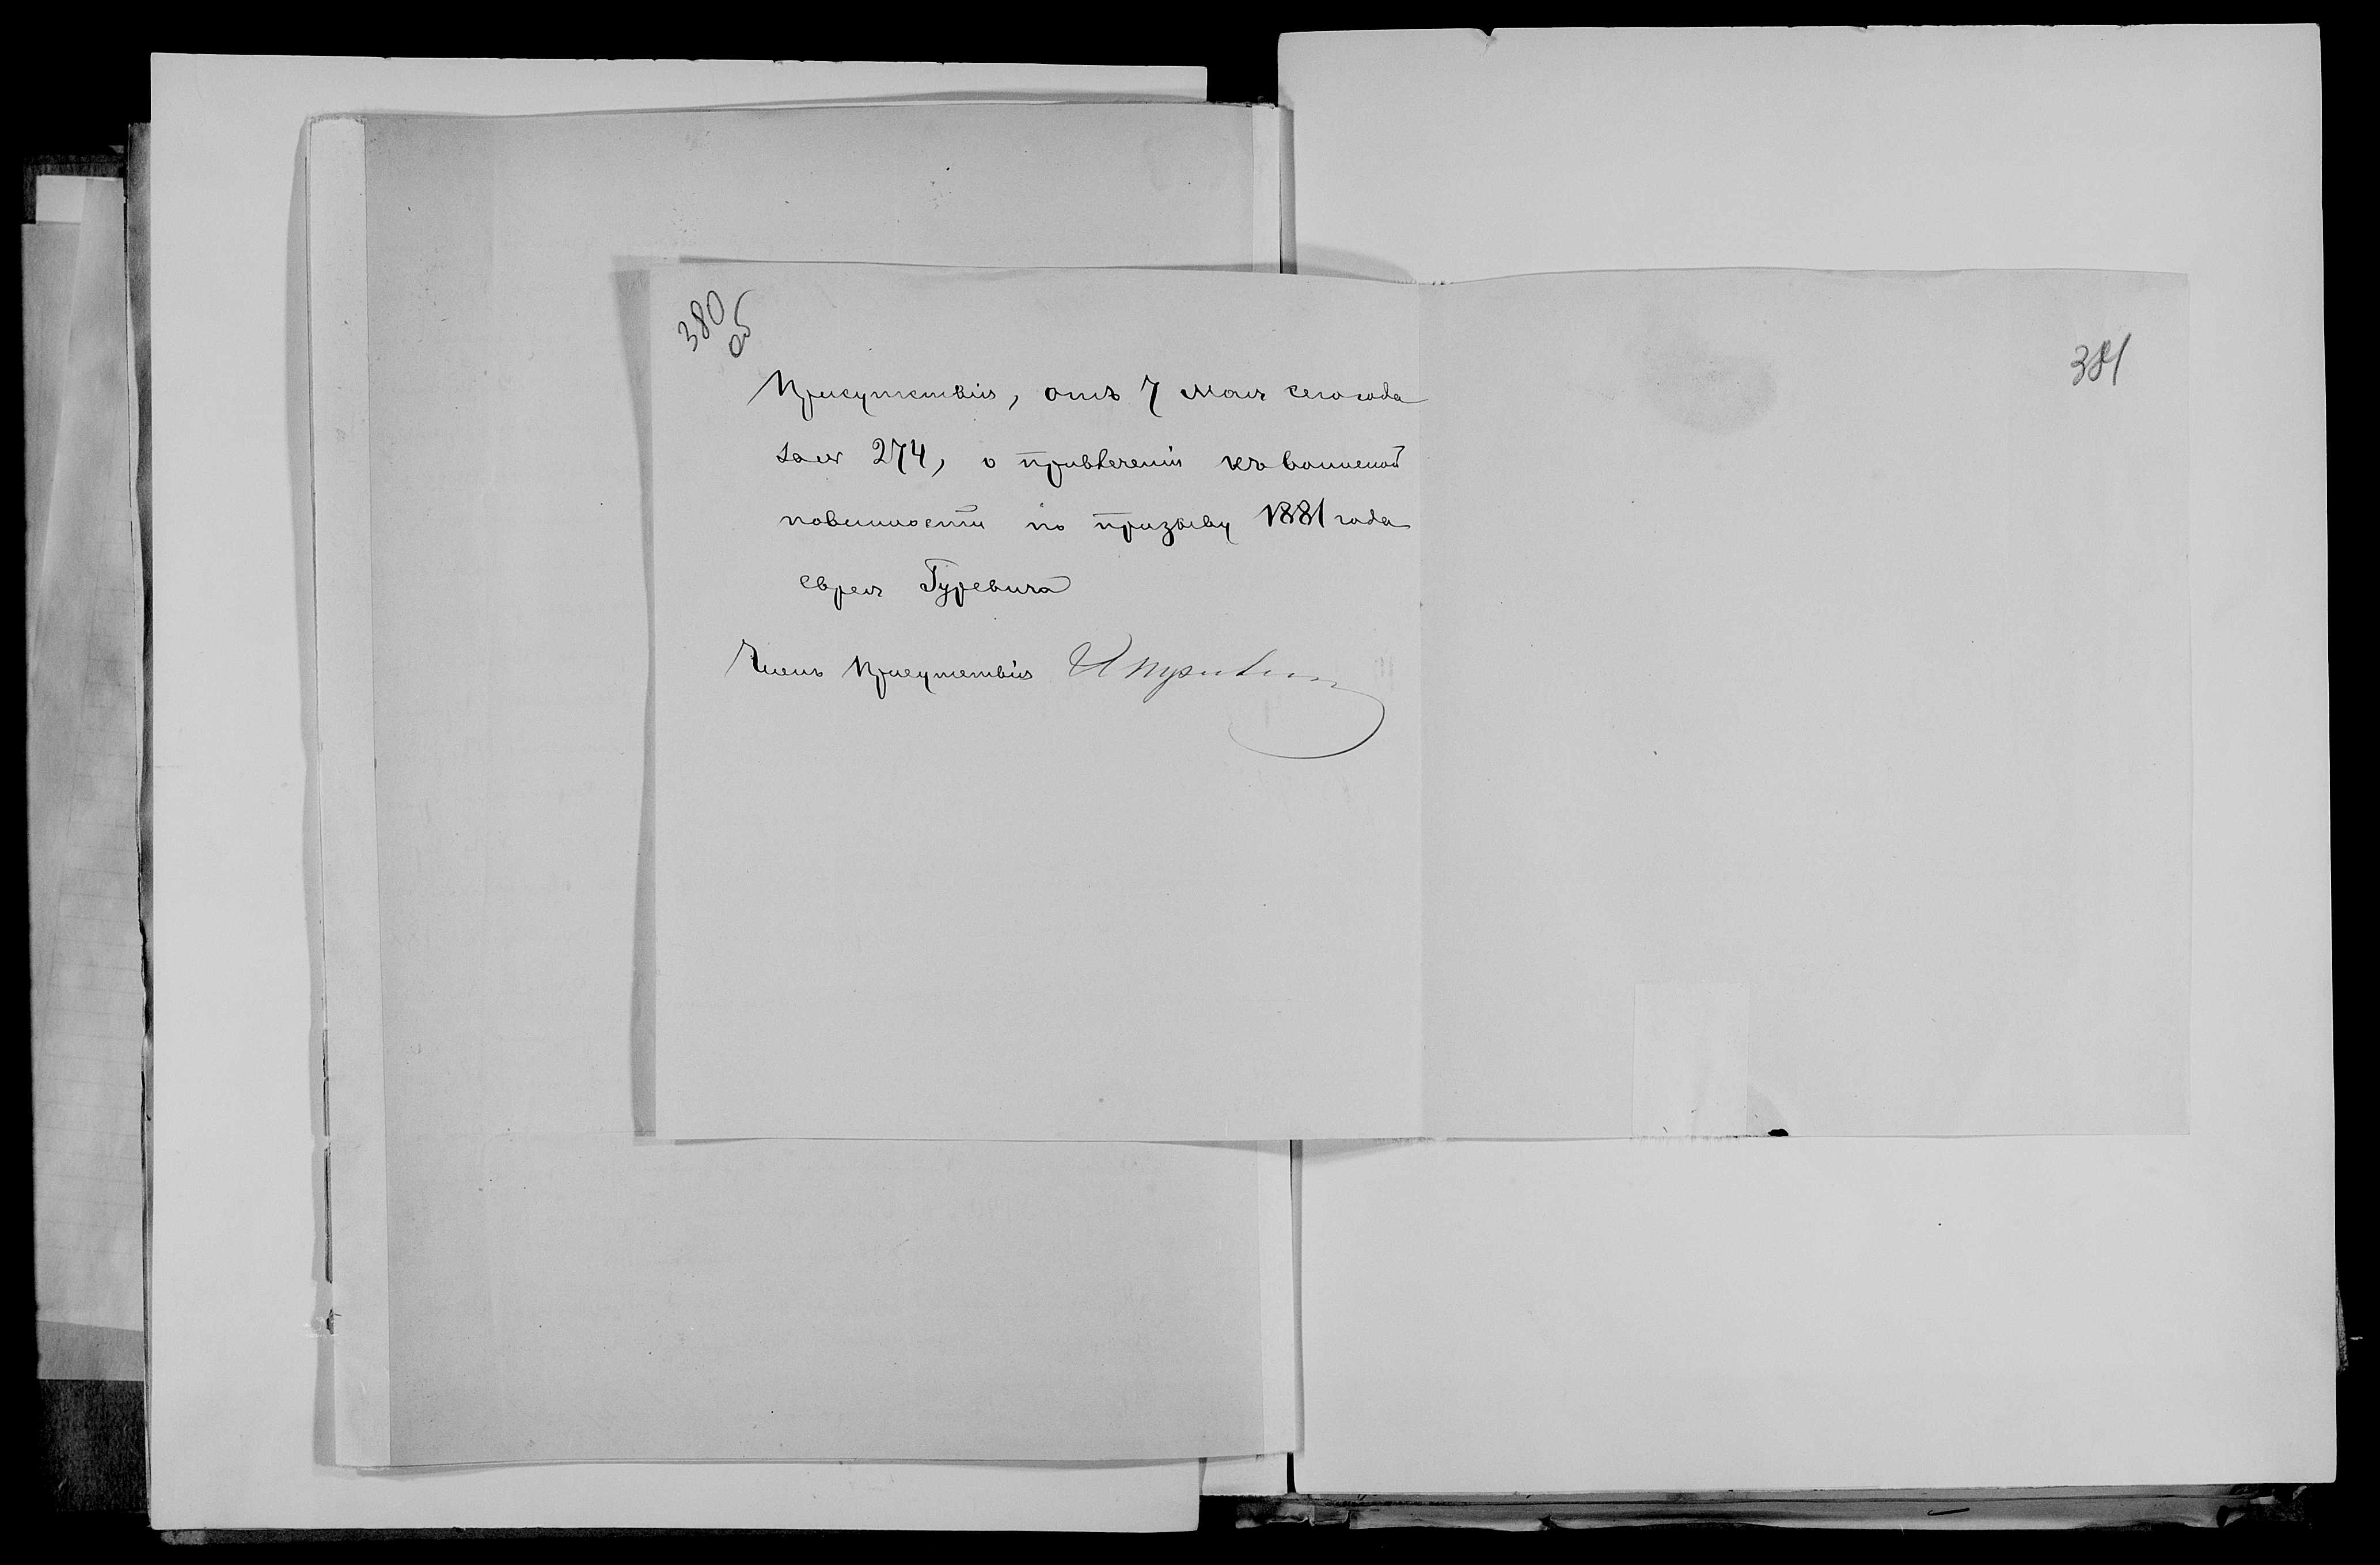 380
об
Присутствія, отъ 7 Мая сего года
за № 274, о привлеченіи къ воинской
повинности по призыву 1881 года
еврея Гуревича
Членъ Присутствія
381